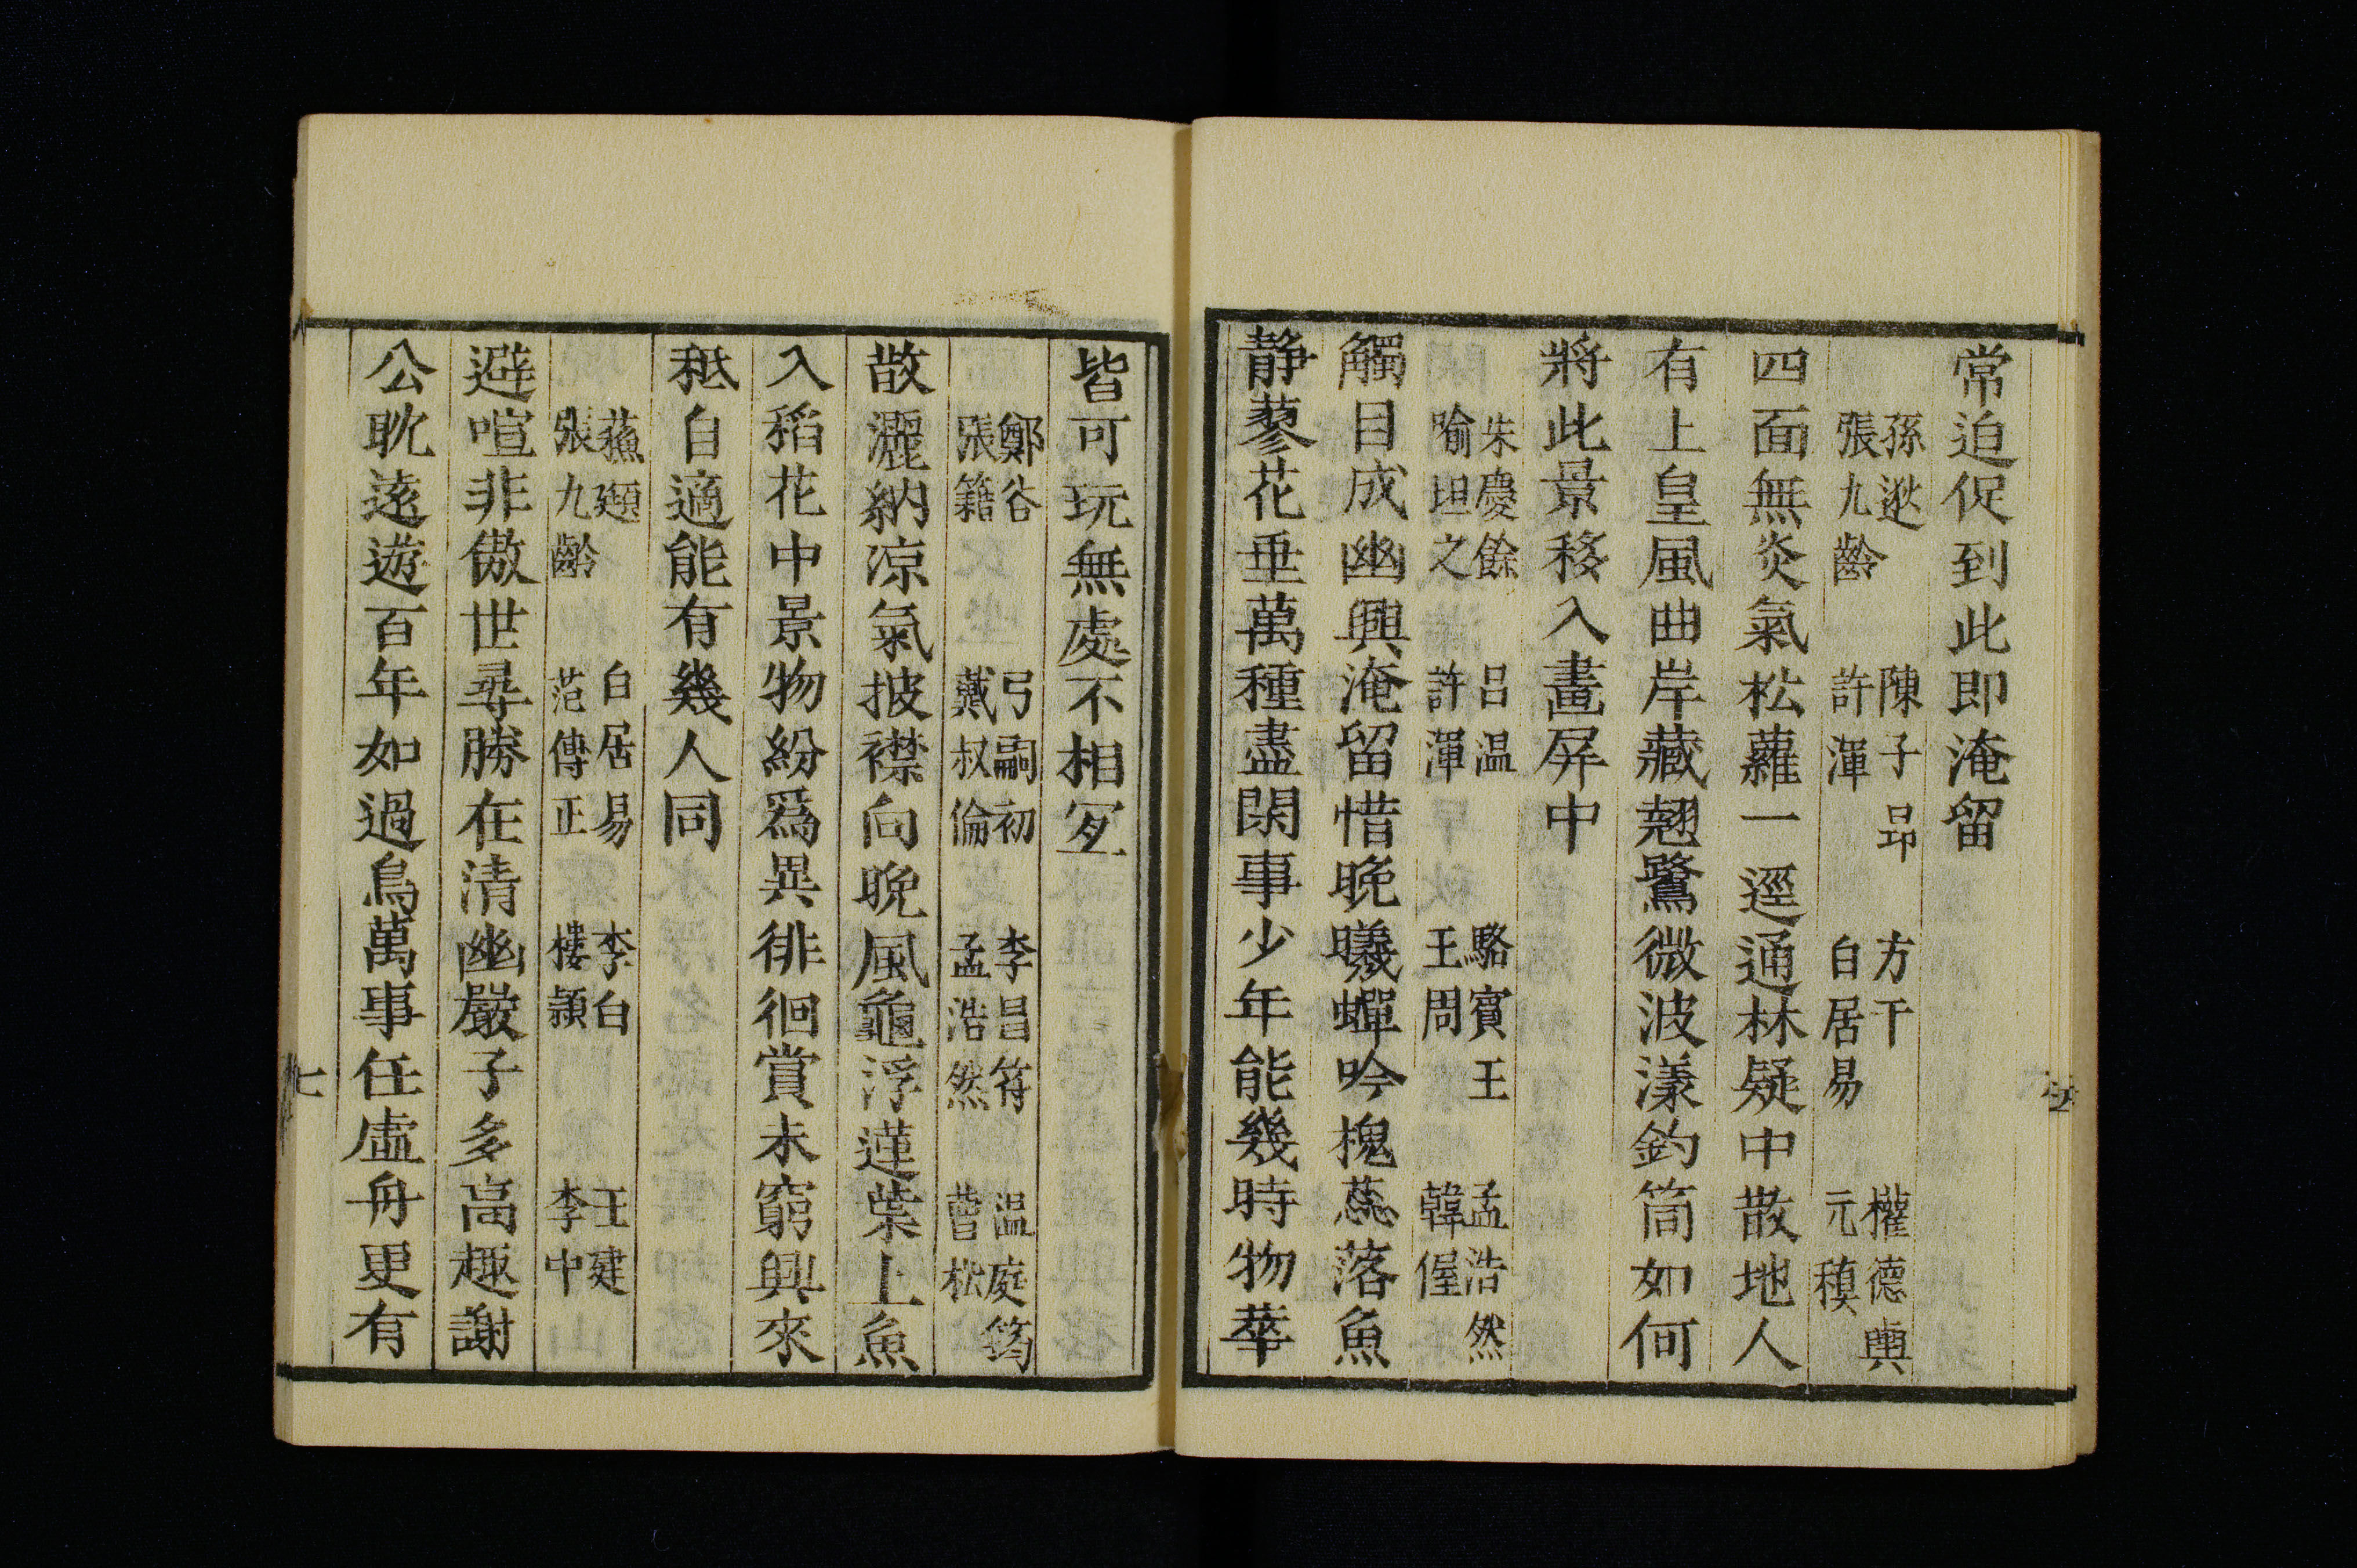 常迫促到此即淹留
孫逖 陳子昂 方干 權德輿
張九齡 許渾 白居易 元稹
四面無炎氣松蘿一逕通林疑中散地人
有上皇風曲岸藏翹鷺微波漾釣筒如何
將此景移入畫屏中
朱慶餘 呂温 駱賓王 孟浩然
喻坦之 許渾 王周 韓偓
觸目成幽興淹留惜晚曦蟬吟槐蕊落魚
静蓼花垂萬種盡閑事少年能幾時物華
皆可玩無處不相冝
鄭谷 弓嗣初 李昌符 温庭筠
張籍 戴叔倫 孟浩然 曹松
散灑納凉氣披襟向晚風龜浮蓮葉上魚
入稻花中景物紛爲異徘徊賞未窮興來
秪自適能有幾人同
蘓頲 白居易 李白 王建
張九齡 范傳正 樓潁 李中
避喧非傲世尋勝在清幽嚴子多高趣謝
公眈遠遊百年如過鳥萬事任虛舟更有
七